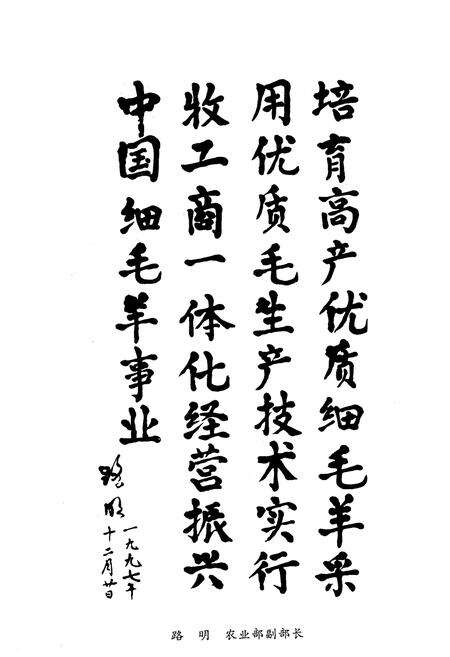 培育高产优质细毛羊采
用优质毛生产技术实行
牧工商一体化经营振兴
中国细毛羊事业
路明
一九九七年
十二月廿日
路 明 农业部副部长